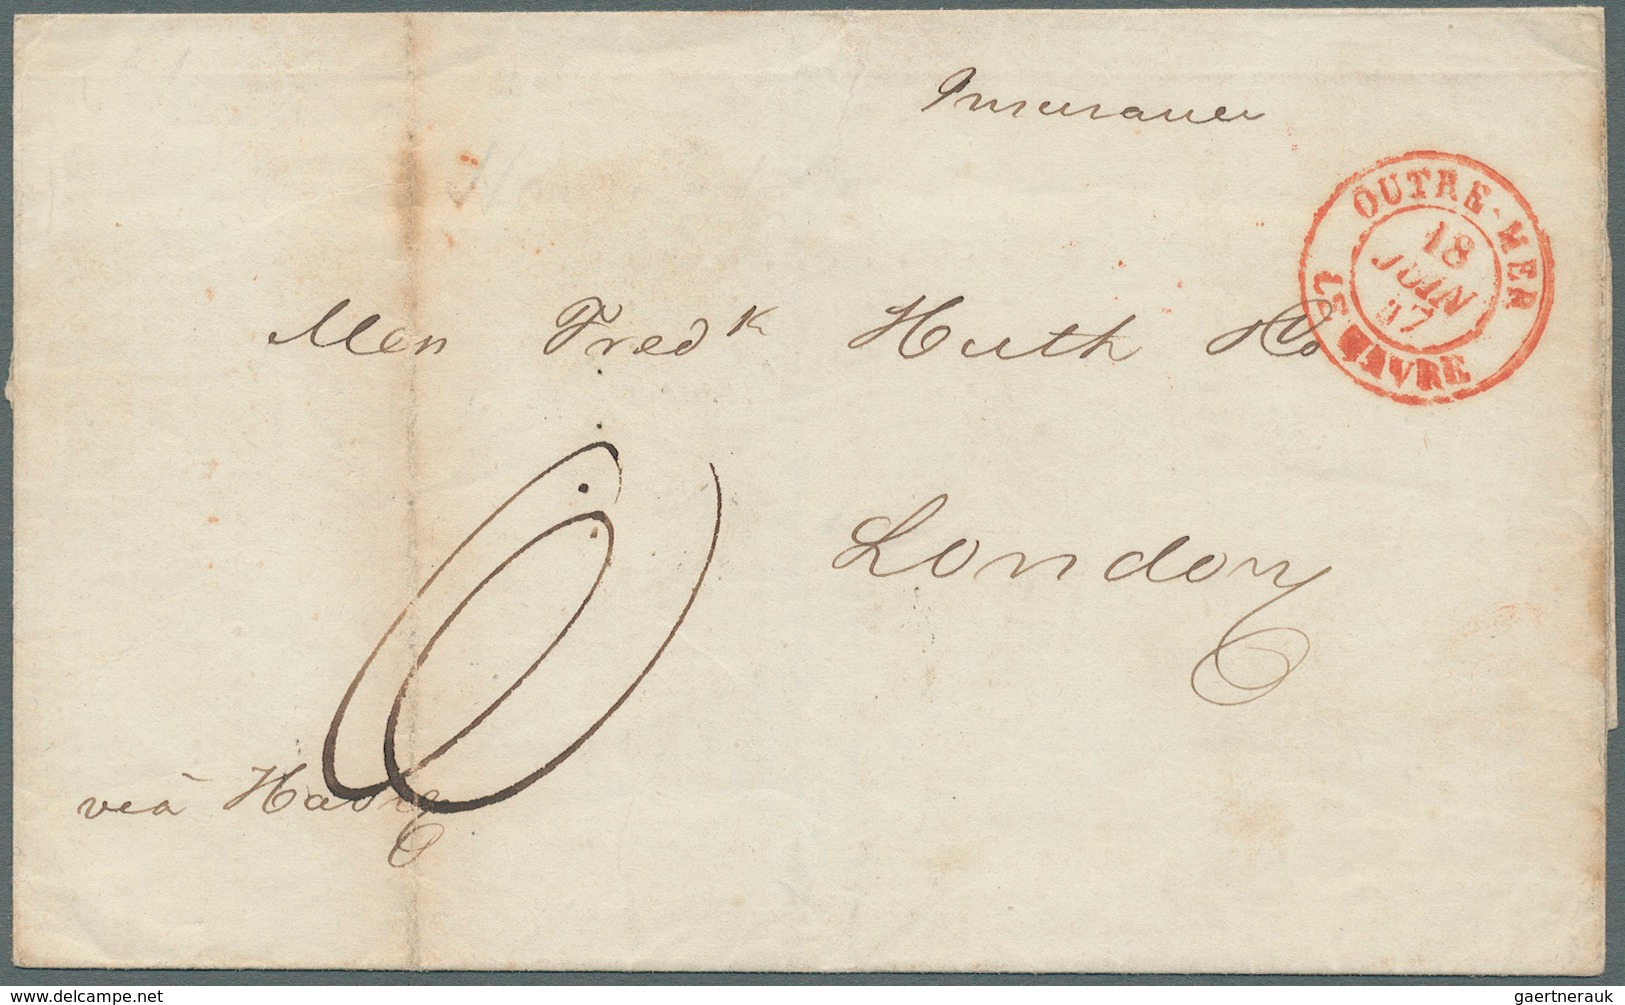 Insurance
OUTRE-MER
18
JUIN
47
LE HAVRE
Messrs Fred k Huth & Co
London
via Havre
delcampe.net
gaertnerauk